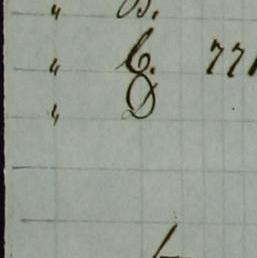 " B.
" C. 771
" D